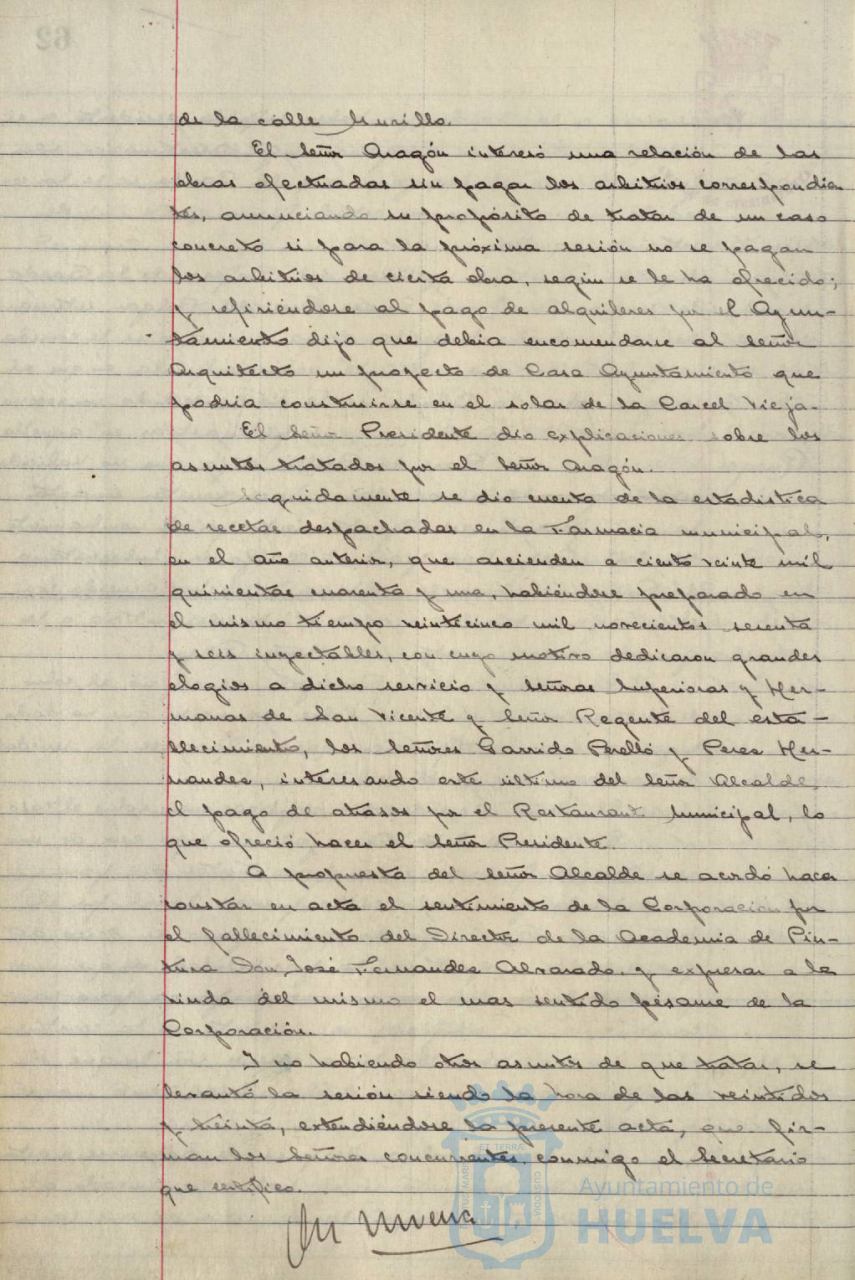 de la calle Murillo.
El Señor Aragón interesó una relación de las
obras efectuadas sin pagar los arbitrios correspondien
tes, anunciando su propósito de tratar de un caso
concreto si para la próxima sesión no se pagan
los arbitrios de cierta obra, según se le ha ofrecido;
y refiriéndose al pago de alquileres por el Ayun-
tamiento dijo que debia encomendarse al Señor
Arquitecto un proyecto de Casa Ayuntamiento que
podria construirse en el solar de la Carcel Vieja.
El Señor Presidente dio explicaciones sobre los
asuntos tratados por el Señor Aragón.
Seguidamente se dio cuenta de la estadistica
de recetas despachadas en la Farmacia municipal,
en el año anterior, que ascienden a ciento veinte mil
quinientas cuarenta y una, habiéndose preparado en
el mismo tiempo veinticinco mil novecientos sesenta
y seis inyectables, con cuyo motivo dedicaron grandes
elogios a dicho servicio y Señoras Superioras y Her-
manas de San Vicente y Señor Regente del esta-
blecimiento, los Señores Garrido Perelló y Perez Her-
nandez, interesando este último del Señor Alcalde,
el pago de atrasos por el Restaurant Municipal, lo
que ofreció hacer el Señor Presidente.
A propuesta del Señor Alcalde se acordó hacer
constar en acta el sentimiento de la Corporacion por
el fallecimiento del Director de la Academia de Pin-
tura Don José Fernandez Alvarado y expresar a la
viuda del mismo el mas sentido pésame de la
Corporación.
Y no habiendo otros asuntos de que tratar, se
levantó la sesión siendo la hora de las veintidos
y treinta, extendiéndose la presente acta, que fir-
man los Señores concurrentes, conmigo el Secretario
que certifico.
Ayuntamiento de
HUELVA